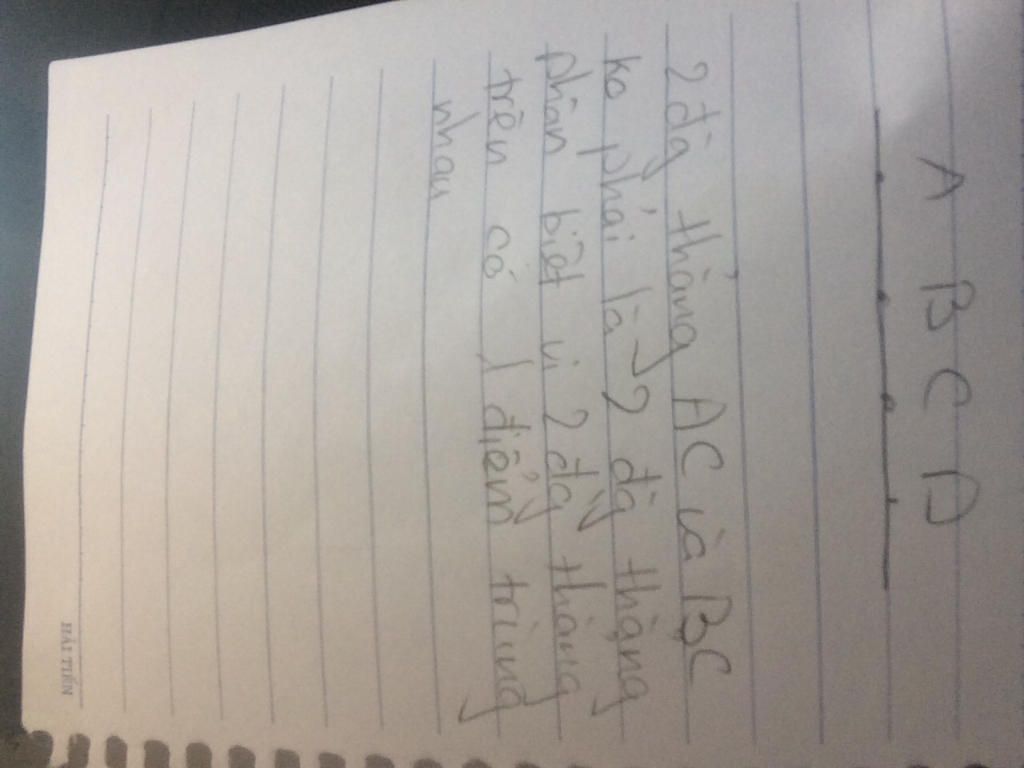 A B C D
2 đg thẳng AC và BC
ko phải là 2 đg thẳng
phân biệt vì 2 đg thẳng
trên có 1 điểm trùng
nhau
HẢI TIẾN